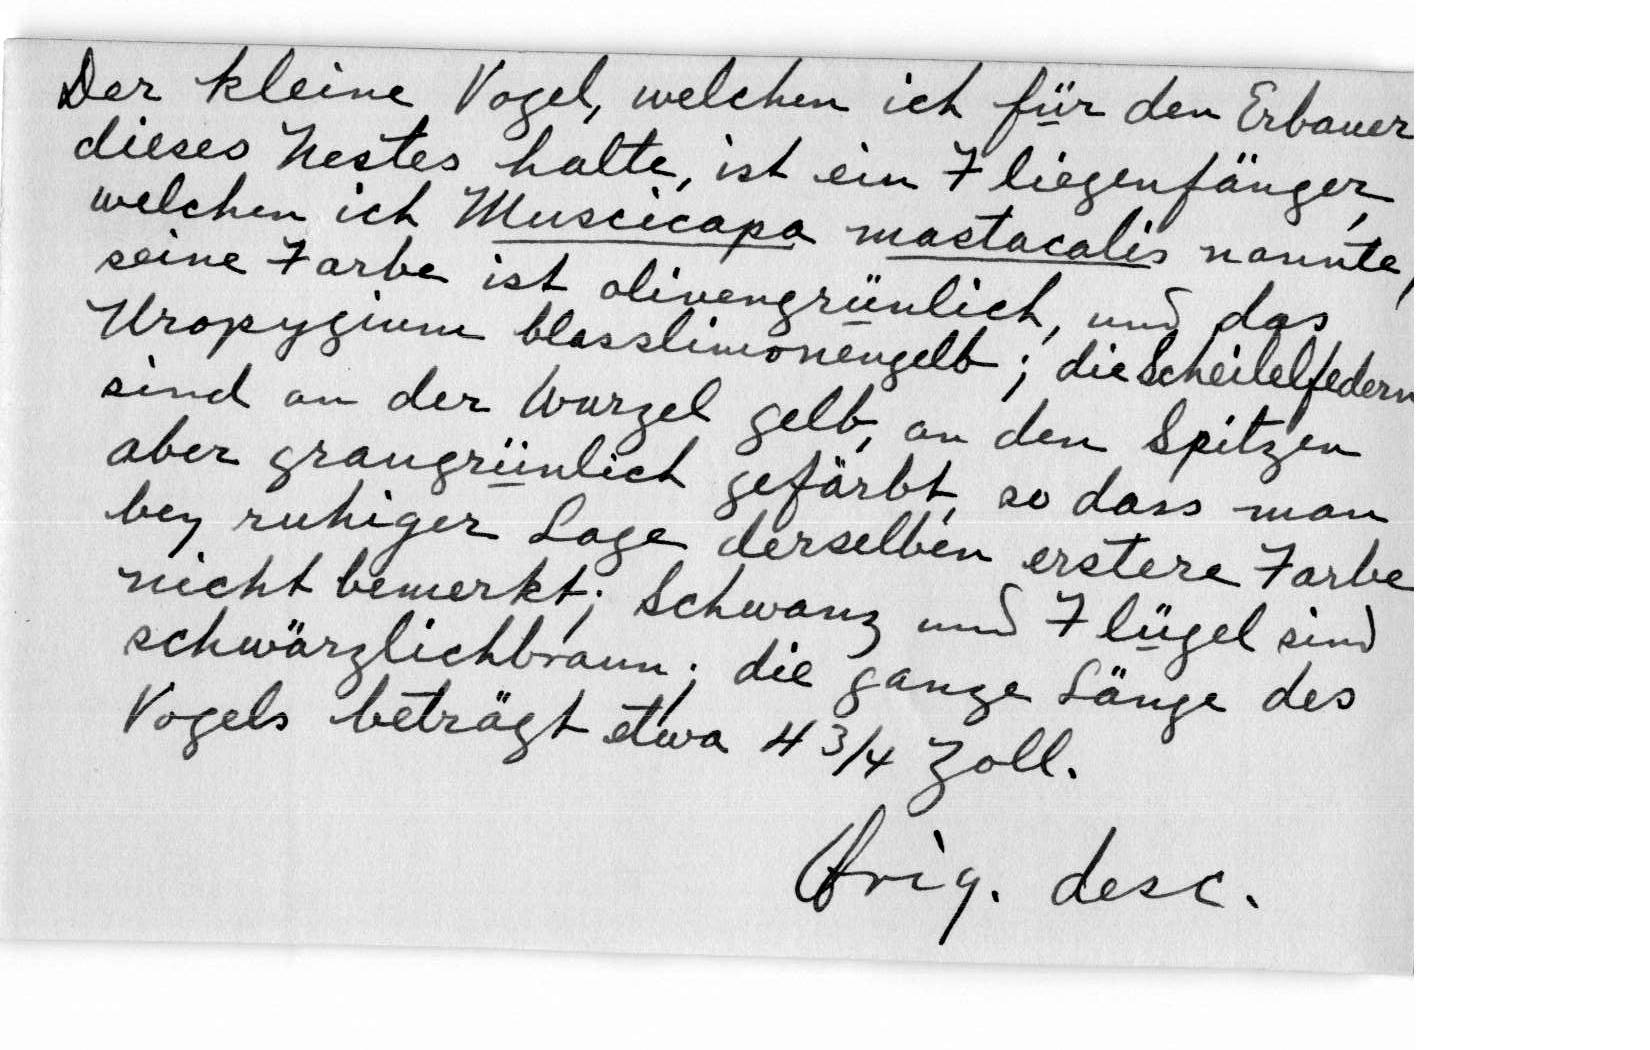 Der kleine Vogel, welchen ich für den Erbauer
dieses Nestes halte, ist ein Fliegenfänger,
welchen ich Muscicapa mastacalis nannte,
seine Farbe ist olivengrünlich, und das
Uropygium blasslimonengelb; die Scheilelfedern
sind an der Wurzel gelb, an den Spitzen
aber graugrünlich gefärbt, so dass man
bey ruhiger Lage derselben erstere Farbe
nicht bemerkt; Schwanz und Flügel sind
schwärzlichbraun; die ganze Länge des
Vogels beträgt etwa 4 3/4 Zoll.
Orig. desc.